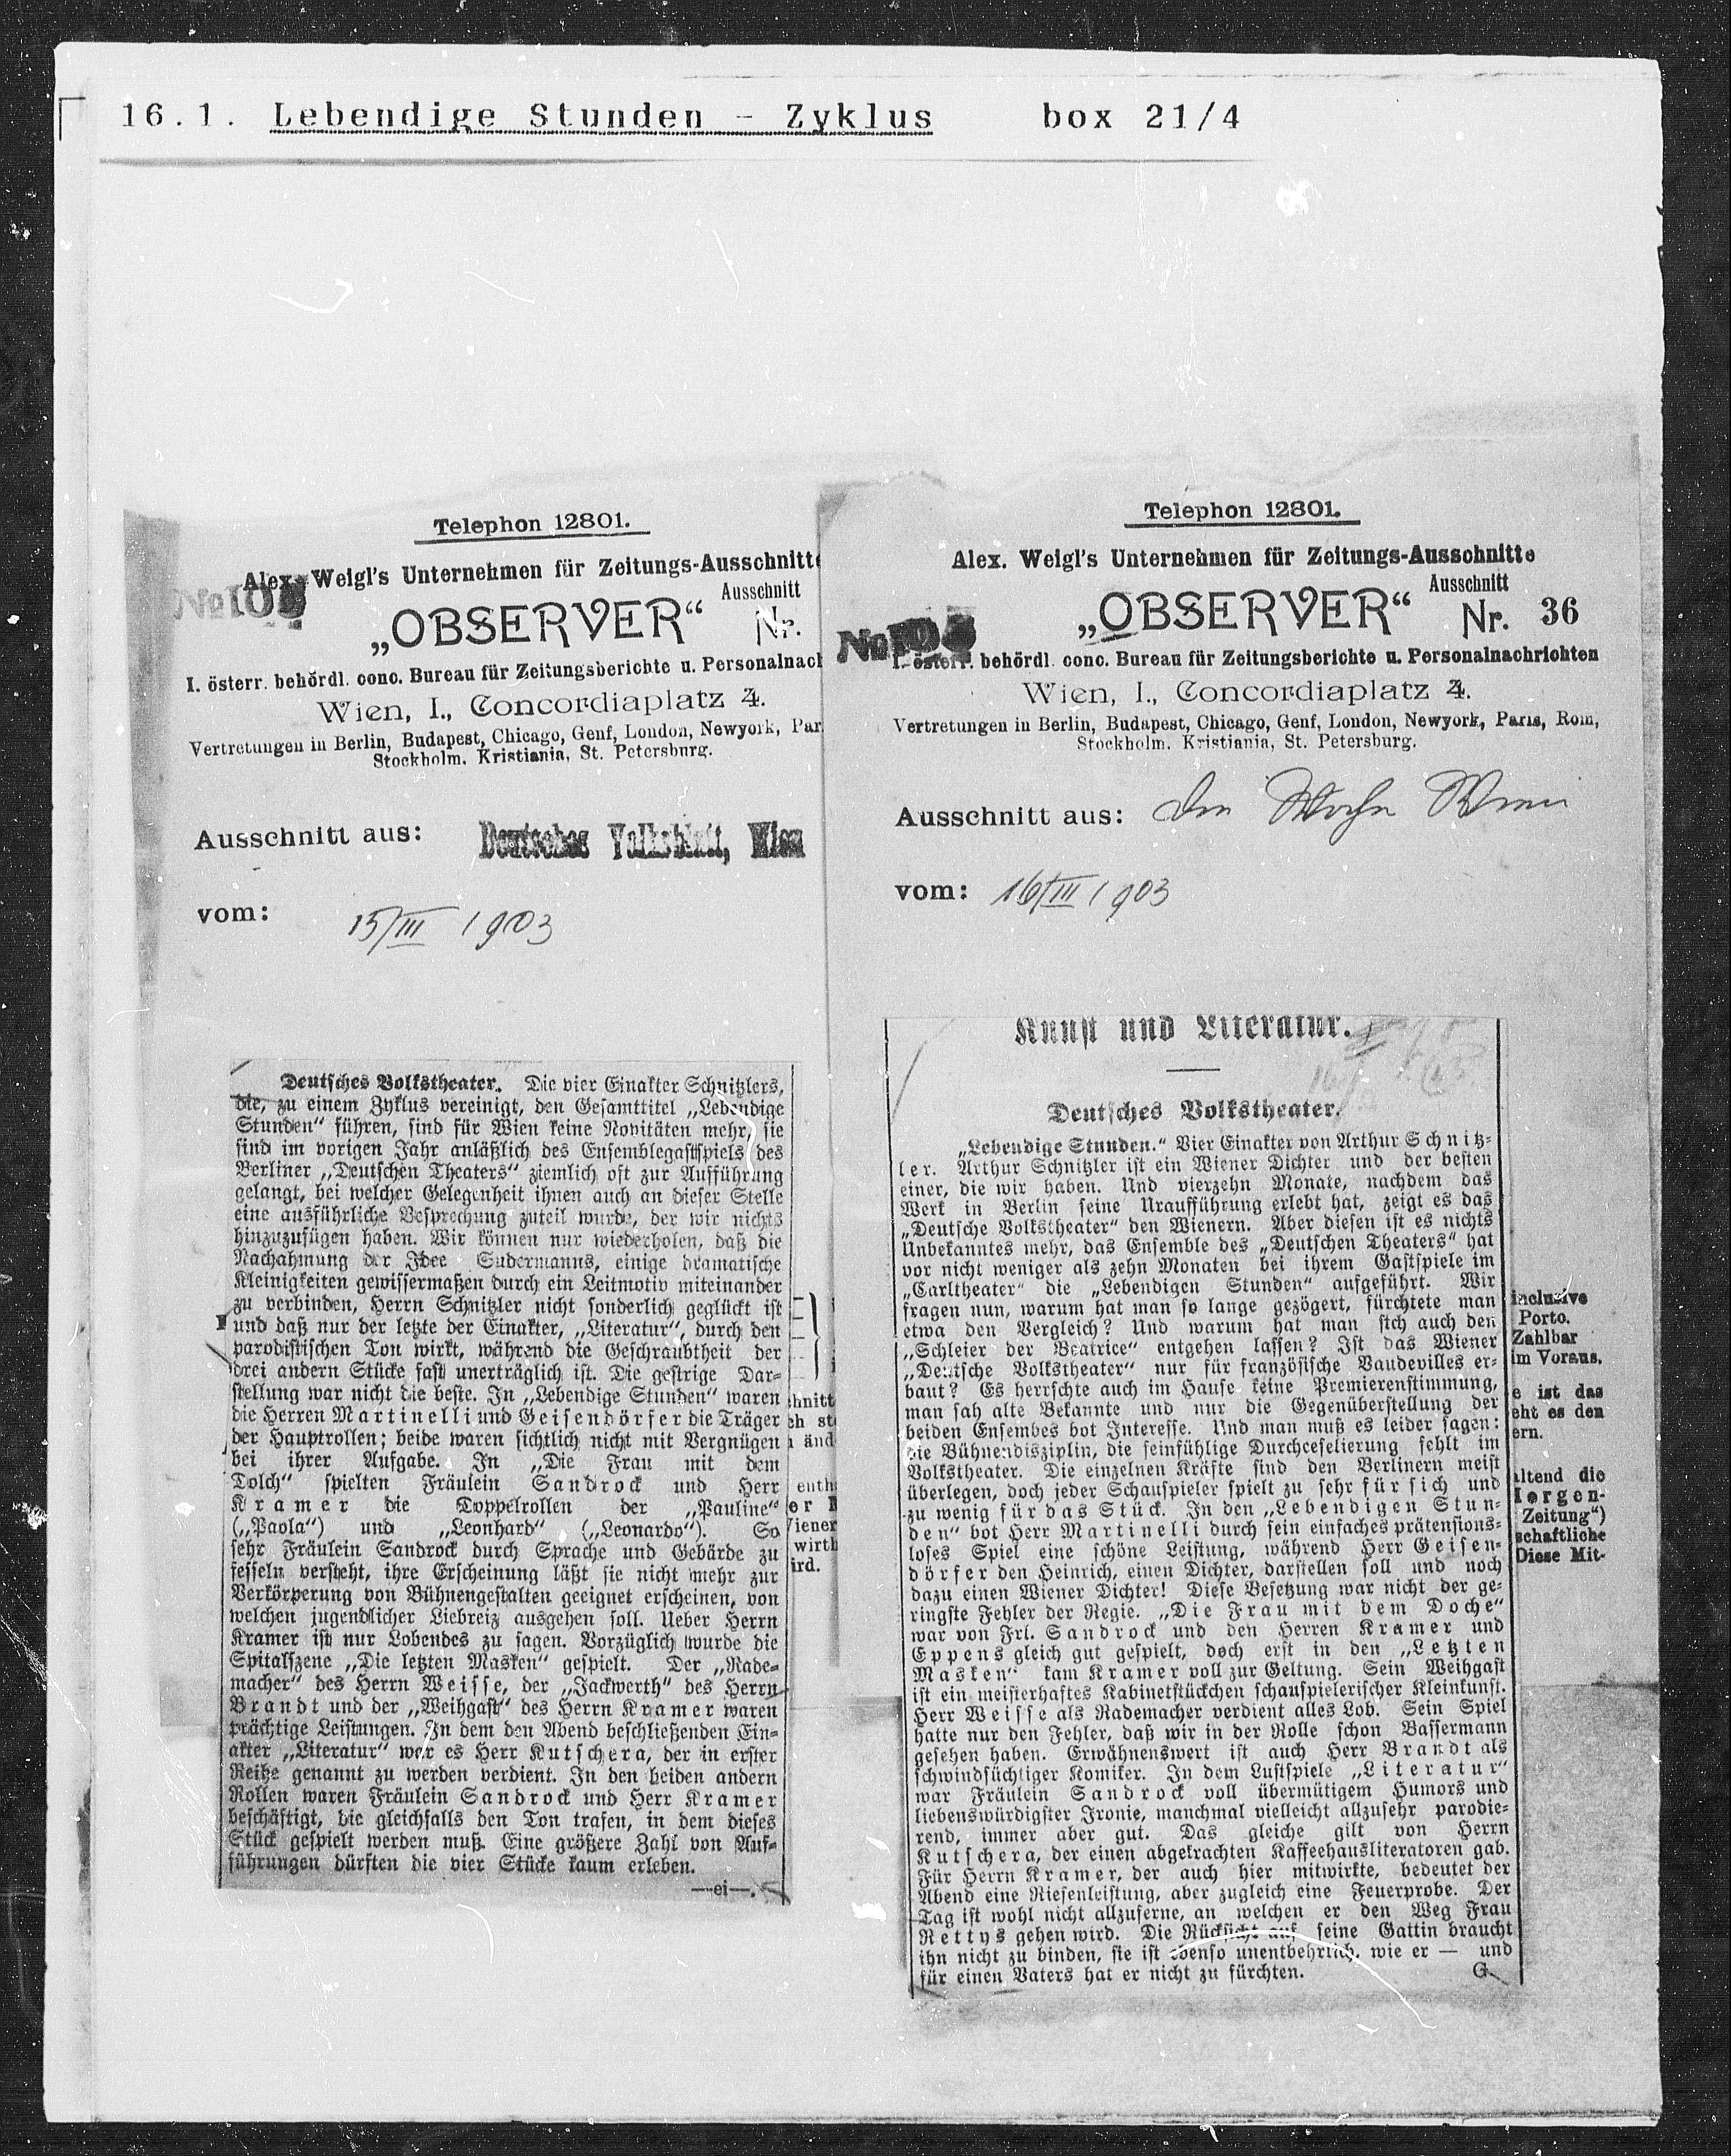 16.1. Lebendige Stunden - Zyklus box 21/4
Telephon 12801.
Alex. Weigl's Unternehmen für Zeitungs-Ausschnitte
Ausschnitt
„OBSERVER“ Nr.
I. österr. behördl. conc. Bureau für Zeitungsberichte u. Personalnach
Wien, I., Concordiaplatz 4.
Vertretungen in Berlin, Budapest, Chicago, Genf, London, Newyork, Par
Stockholm, Kristiania, St. Petersburg.
Ausschnitt aus: Deutsches Volksblatt, Wien
vom: 15/III 1903
Deutsches Volkstheater. Die vier Einakter Schnitzlers,
die, zu einem Zyklus vereinigt, den Gesamttitel „Lebendige
Stunden“ führen, sind für Wien keine Novitäten mehr, sie
sind im vorigen Jahr anläßlich des Ensemblegastspiels des
Berliner „Deutschen Theaters“ ziemlich oft zur Aufführung
gelangt, bei welcher Gelegenheit ihnen auch an dieser Stelle
eine ausführliche Besprechung zuteil wurde, der wir nichts
hinzuzufügen haben. Wir können nur wiederholen, daß die
Nachahmung der Idee Sudermanns, einige dramatische
Kleinigkeiten gewissermaßen durch ein Leitmotiv miteinander
zu verbinden, Herrn Schnitzler nicht sonderlich geglückt ist
und daß nur der letzte der Einakter, „Literatur“, durch den
parodistischen Ton wirkt, während die Geschraubtheit der
drei andern Stücke fast unerträglich ist. Die gestrige Dar-
stellung war nicht die beste. In „Lebendige Stunden“ waren
die Herren Martinelli und Geisendörfer die Träger
der Hauptrollen; beide waren sichtlich nicht mit Vergnügen
bei ihrer Aufgabe. In „Die Frau mit dem
Dolch“ spielten Fräulein Sandrock und Herr
Kramer die Doppelrollen der „Pauline“
(„Paola“) und „Leonhard“ („Leonardo“). So
sehr Fräulein Sandrock durch Sprache und Gebärde zu
fesseln versteht, ihre Erscheinung läßt sie nicht mehr zur
Verkörperung von Bühnengestalten geeignet erscheinen, von
welchen jugendlicher Liebreiz ausgehen soll. Ueber Herrn
Kramer ist nur Lobendes zu sagen. Vorzüglich wurde die
Spitalszene „Die letzten Masken“ gespielt. Der „Rade-
macher“ des Herrn Weisse, der „Jackwerth“ des Herrn
Brandt und der „Weihgast“ des Herrn Kramer waren
prächtige Leistungen. In dem den Abend beschließenden Ein-
akter „Literatur“ war es Herr Kutschera, der in erster
Reihe genannt zu werden verdient. In den beiden andern
Rollen waren Fräulein Sandrock und Herr Kramer
beschäftigt, die gleichfalls den Ton trafen, in dem dieses
Stück gespielt werden muß. Eine größere Zahl von Auf-
führungen dürften die vier Stücke kaum erleben.
—ei—.
hnitt
enth
Viener
wirth
ird.
Telephon 12801.
Alex. Weigl's Unternehmen für Zeitungs-Ausschnitte
Ausschnitt
„OBSERVER“ Nr. 36
I. österr. behördl. conc. Bureau für Zeitungsberichte u. Personalnachrichten
Wien, I., Concordiaplatz 4.
Vertretungen in Berlin, Budapest, Chicago, Genf, London, Newyork, Paris, Rom,
Stockholm, Kristiania, St. Petersburg.
Ausschnitt aus: Die Woche Wien
vom: 16/III 1903
Kunst und Literatur.
Deutsches Volkstheater.
„Lebendige Stunden.“ Vier Einakter von Arthur Schnitz-
ler. Arthur Schnitzler ist ein Wiener Dichter und der besten
einer, die wir haben. Und vierzehn Monate, nachdem das
Werk in Berlin seine Uraufführung erlebt hat, zeigt es das
„Deutsche Volkstheater“ den Wienern. Aber diesen ist es nichts
Unbekanntes mehr, das Ensemble des „Deutschen Theaters“ hat
vor nicht weniger als zehn Monaten bei ihrem Gastspiele im
„Carltheater“ die „Lebendigen Stunden“ aufgeführt. Wir
fragen nun, warum hat man so lange gezögert, fürchtete man
etwa den Vergleich? Und warum hat man sich auch den
„Schleier der Beatrice“ entgehen lassen? Ist das Wiener
„Deutsche Volkstheater“ nur für französische Vaudevilles er-
baut? Es herrschte auch im Hause keine Premierenstimmung,
man sah alte Bekannte und nur die Gegenüberstellung der
beiden Ensembes bot Interesse. Und man muß es leider sagen:
die Bühnendisziplin, die feinfühlige Durchceselierung fehlt im
Volkstheater. Die einzelnen Kräfte sind den Berlinern meist
überlegen, doch jeder Schauspieler spielt zu sehr für sich und
zu wenig für das Stück. In den „Lebendigen Stun-
den“ bot Herr Martinelli durch sein einfaches prätensions-
loses Spiel eine schöne Leistung, während Herr Geisen-
dörfer den Heinrich, einen Dichter, darstellen soll und noch
dazu einen Wiener Dichter! Diese Besetzung war nicht der ge-
ringste Fehler der Regie. „Die Frau mit dem Doche“
war von Frl. Sandrock und den Herren Kramer und
Eppens gleich gut gespielt, doch erst in den „Letzten
Masken“ kam Kramer voll zur Geltung. Sein Weihgast
ist ein meisterhaftes Kabinetstückchen schauspielerischer Kleinkunst.
Herr Weisse als Rademacher verdient alles Lob. Sein Spiel
hatte nur den Fehler, daß wir in der Rolle schon Bassermann
gesehen haben. Erwähnenswert ist auch Herr Brandt als
schwindsüchtiger Komiker. In dem Lustspiele „Literatur“
war Fräulein Sandrock voll übermütigem Humors und
liebenswürdigster Ironie, manchmal vielleicht allzusehr parodie-
rend, immer aber gut. Das gleiche gilt von Herrn
Kutschera, der einen abgekrachten Kaffeehausliteratoren gab.
Für Herrn Kramer, der auch hier mitwirkte, bedeutet der
Abend eine Riesenleistung, aber zugleich eine Feuerprobe. Der
Tag ist wohl nicht allzuferne, an welchen er den Weg Frau
Rettys gehen wird. Die Rücksicht auf seine Gattin braucht
ihn nicht zu binden, sie ist ebenso unentbehrlich, wie er — und
für einen Vaters hat er nicht zu fürchten. G.
inclusive
Porto.
Zahlbar
im Voraus.
e ist das
eht es den
ern.
altend die
Morgen-
Zeitung“)
schaftliche
Diese Mit-